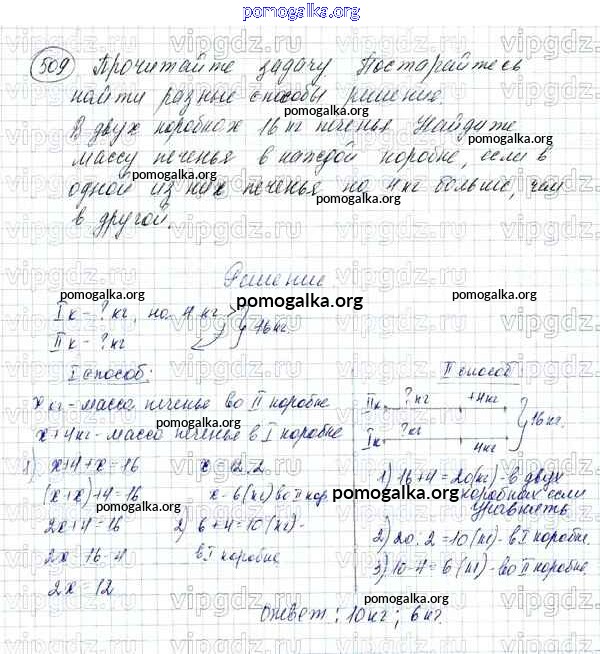 pomogalka.org
509 Прочитайте задачу Постарайтесь
найти разные способы решение.
В двух коробках 16 кг печенья Найдите
массу печенья в каждой коробке, если в
одной из них печенья на 4 кг больше, чем
в другой.
Решение
I к - ? кг, на 4 кг
II к - ? кг
16 кг.
I способ:
x кг - масса печенье во II коробке
x+4 кг - масса печенье в I коробке
1) x+4+x=16
(x+x)+4=16
2x+4=16
2x=16-4
2x=12
x=12:2
x=6 (кг) во II кор
2) 6+4=10 (кг) -
в I коробке
II способ
II к ? кг +4 кг
I к ? кг 4 кг
16 кг.
1) 16+4=20 (кг) - в двух
коробках если
уравнять
2) 20:2=10 (кг) - в I коробке.
3) 10-4=6 (кг) - во II коробке.
Ответ: 10 кг; 6 кг.